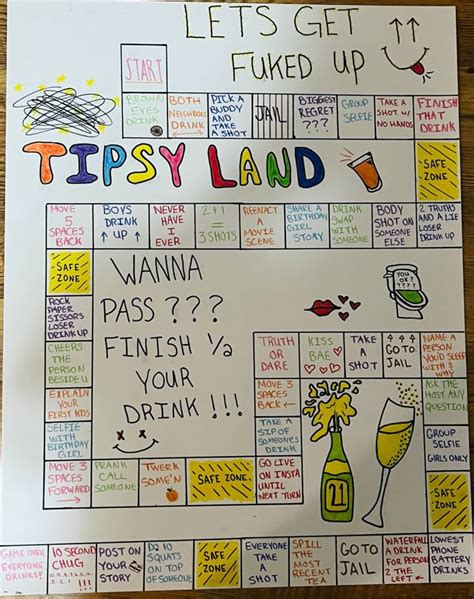 LETS GET
FUKED UP
START
BROWN
EYES
DRINK
BOTH
NEIGHBORS
DRINK
PICK A
BUDDY
AND
TAKE
A SHOT
JAIL
BIGGEST
REGRET
???
GROUP
SELFIE
TAKE A
SHOT W/
NO HANDS
FINISH
THAT
DRINK
TIPSY LAND
SAFE
ZONE
MOVE
5
SPACES
BACK
BOYS
DRINK
UP
NEVER
HAVE
I
EVER
2+1
=
3 SHOTS
REENACT
A
MOVIE
SCENE
SHARE A
BIRTHDAY
GIRL
STORY
DRINK
SWAP
WITH
SOMEONE
BODY
SHOT ON
SOMEONE
ELSE
2 TRUTHS
AND A LIE
LOSER
DRINK UP
SAFE
ZONE
WANNA
PASS ???
FINISH 1/2
YOUR
DRINK !!!
YOU
OK?
????
ROCK
PAPER
SISSORS
LOSER
DRINK UP
CHEERS
THE
PERSON
BESIDE U
EXPLAIN
YOUR
FIRST KISS
SELFIE
WITH
BIRTHDAY
GIRL
MOVE 3
SPACES
FORWARD
PRANK
CALL
SOMEONE
TWERK
SOME'N
SAFE ZONE
GO LIVE
ON INSTA
UNTIL
NEXT TURN
TAKE A
SIP OF
SOMEONES
DRINK
MOVE 3
SPACES
BACK
TRUTH
OR
DARE
KISS
BAE
TAKE
A
SHOT
GO TO
JAIL
NAME A
PERSON
YOU'D SLEEP
WITH &
WHY
ASK THE
HOST ANY
QUESTION
GROUP
SELFIE
GIRLS ONLY
SAFE
ZONE
21
LOWEST
PHONE
BATTERY
DRINKS
WATERFALL
A DRINK
FOR PERSON
2 THE
LEFT
GO TO
JAIL
SPILL
THE
MOST
RECENT
TEA
EVERYONE
TAKE
A
SHOT
SAFE
ZONE
DO 10
SQUATS
ON TOP
OF SOMEONE
POST ON
YOUR
STORY
10 SECOND
CHUG
!!!
GAME OVER
EVERYONE
DRINKS!